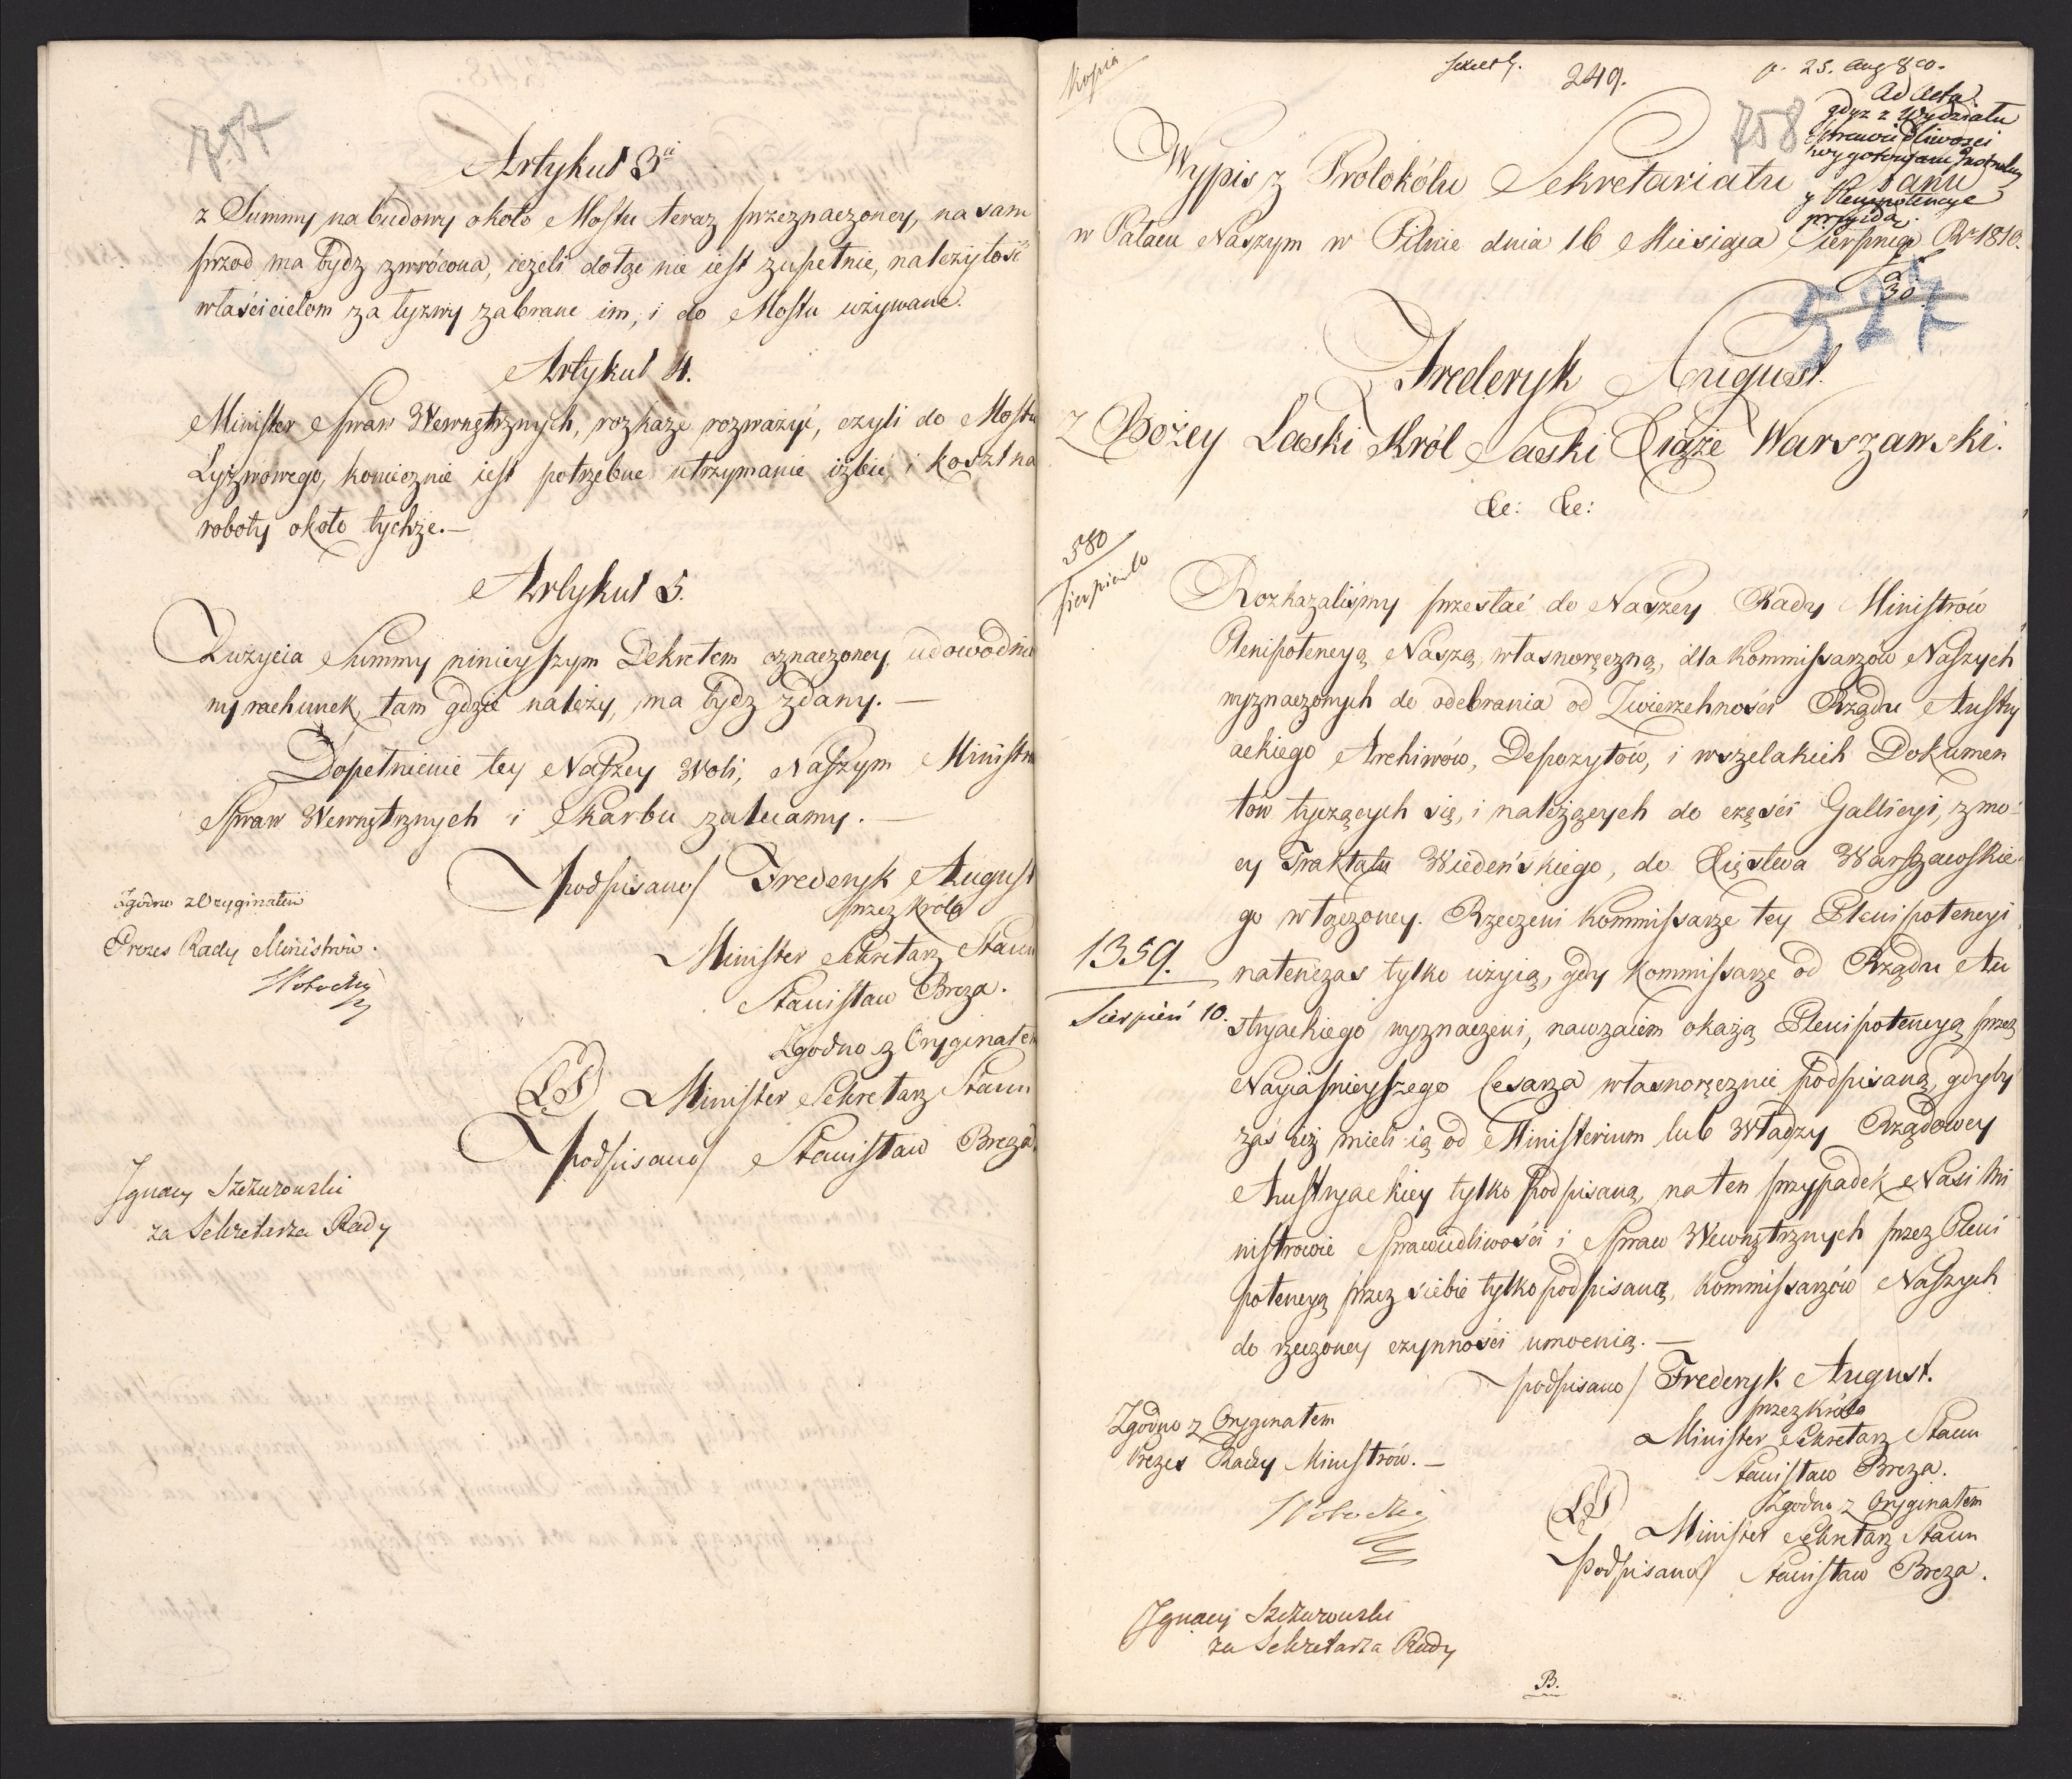 757
Artykuł 3ci
z Summy na budowy około Mostu teraz przeznaczoney, na sam
przod ma bydz zwrócona, ieżeli dotąd nie iest zupełnie, należytość
właścicielom za łyzwy zabrane im, i do Mostu używane.
Artykuł 4.
Minister Spraw Wewnętrznych, rozkaże rozważyć, czyli do Mostu
Łyżwowego, koniecznie iest potrzebne utrzymanie izbic i koszt na
roboty około tychże.—
Artykuł 5.
Z użycia Summy ninieyszym Dekretem oznaczoney, udowodnio
ny rachunek, tam gdzie należy, ma bydz zdany.—
Dopełnienie tey Naszey Woli, Naszym Ministro
Spraw Wewnętrznych i Skarbu zalecamy.—
podpisano/ Frederyk August
przez Króla
Minister Sekretarz Stanu
Stanisław Breza.
Zgodno z Oryginałem
(LS) Minister Sekretarz Stanu
podpisano/ Stanisław Breza.
Zgodno z Oryginałem
Prezes Rady Ministrów.
Ignacy Szczurowski
za Sekretarza Rady
Kopia
249.
p. 25. Aug 810.
758
Ad Acta.
gdyz z Wydziału
Sprawiedliwosci
y Plenipotencye
przyidą.
Wypis z Protokółu Sekretariatu Stanu
w Pałacu Naszym w Pilnie dnia 16 Miesiąca Sierpnia Rv 1810.
30
527
Frederyk August.
z Bożey Łaski Król Saski Xiąże Warszawski.
&c: &c:
580
Sierpień 10
Rozkazaliśmy przesłać do Naszey Rady Ministrów
Plenipotencyą Naszą, własnoręczną, dla Kommissarzów Naszych
wyznaczonych do odebrania od Zwierzchności Rządu Austry
ackiego Archiwów, Depozytów, i wszelakich Dokumen
tów tyczących się, i należących do części Gallicyi, z mo-
cy Traktatu Wiedeńskiego, do Xięstwa Warszawskie-
go włączoney. Rzeczeni Kommissarze tey Plenipotencyi
1359.
Sierpień 10.
natenczas tylko użyią, gdy Kommissarze od Rządu Au
stryackiego wyznaczeni, nawzaiem okażą Plenipotencyą przez
Nayiaśnieyszego Cesarza własnoręcznie podpisaną, gdyby
zaś iiż mieli ią od Ministerium lub Władzy Rządowey
Austryackiey tylko podpisaną, na ten przypadek Nasi Mi
nistrowie Sprawiedliwości i Spraw Wewnętrznych przez Pleni
potencyą przez siebie tylko podpisaną, Kommissarzów Naszych
do rzeczoney czynności umocnią.—
podpisano/ Frederyk August.
przez Króla
Minister Sekretarz Stanu
Stanisław Breza.
Zgodno z Oryginałem
(LS) Minister Sekretarz Stanu
podpisano/ Stanisław Breza.
Zgodno z Oryginałem
Prezes Rady Ministrów.—
Ignacy Szczurowski
za Sekretarza Rady
B.